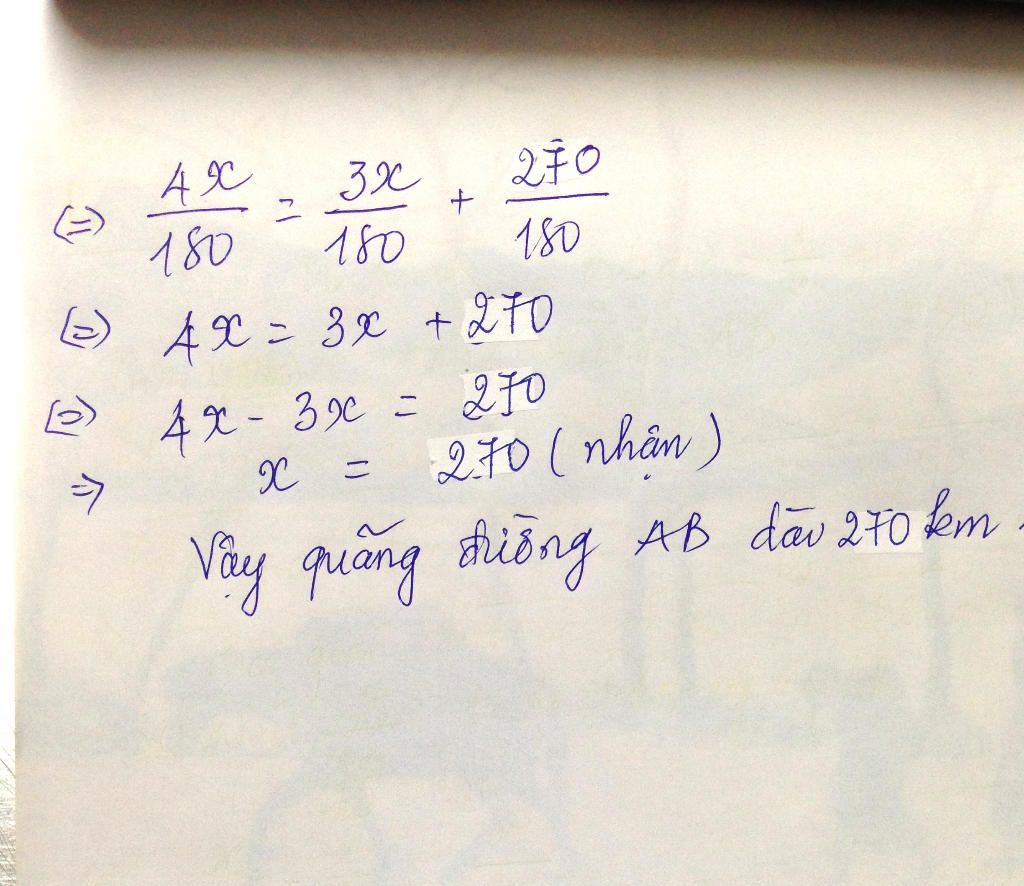 (=) 4x/180 = 3x/180 + 270/180
(=) 4x = 3x + 270
(=) 4x - 3x = 270
=> x = 270 (nhận)
Vậy quãng đường AB dài 270 km.